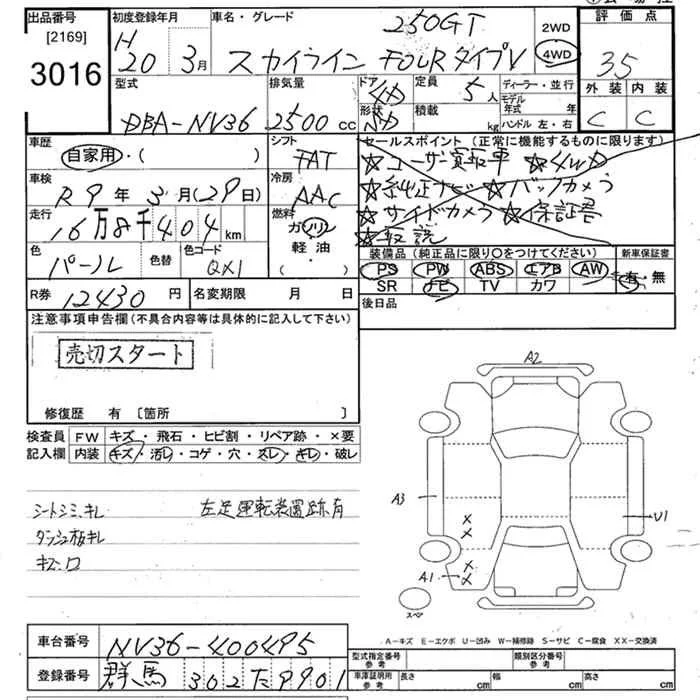 出品番号
[2169]
3016
初度登録年月
H
20 3月
車名・グレード
250GT
スカイライン FOURタイプV
2WD
4WD
評価点
35
外装 内装
C C
型式
DBA-NV36
排気量
2500cc
ドア 4D
形状 SD
定員 5人
積載 kg
ディーラー・並行
モデル年式 年
ハンドル 左・右
車歴
自家用・( )
シフト
FAT
車検
R9年3月(29日)
冷房
AAC
走行
16万8千404km
燃料
ガソリン
軽油
・( )
色
パール
色替
色コード
QX1
R券 12430円
名変期限 月 日
セールスポイント(正常に機能するものに限ります)
☆ユーザー買取車 ☆4WD
☆純正ナビ☆バックカメラ
☆サイドカメラ☆保証書
☆取説
装備品(純正品に限り○をつけてください)
新車保証書
PS PW ABS エアB AW
SR ナビ TV カワ
有・無
後日品
注意事項申告欄(不具合内容等は具体的に記入して下さい)
売切スタート
修復歴 有 〔箇所 〕
検査員
記入欄
FW キズ・飛石・ヒビ割・リペア跡・×要
内装 キズ・汚レ・コゲ・穴・スレ・キレ・破レ
シートシミ、キレ
左足運転装置跡有
ダッシュ板キレ
キズ・
A2
A3
U1
A1
スペア
A-キズ E-エクボ U-凹み W-補修跡 S-サビ C-腐食 XX-交換済
車台番号
NV36-400495
登録番号
群馬 302た9901
型式指定番号
参考
類別区分番号
参考
車庫証明用
参考
長さ cm
幅 cm
高さ cm